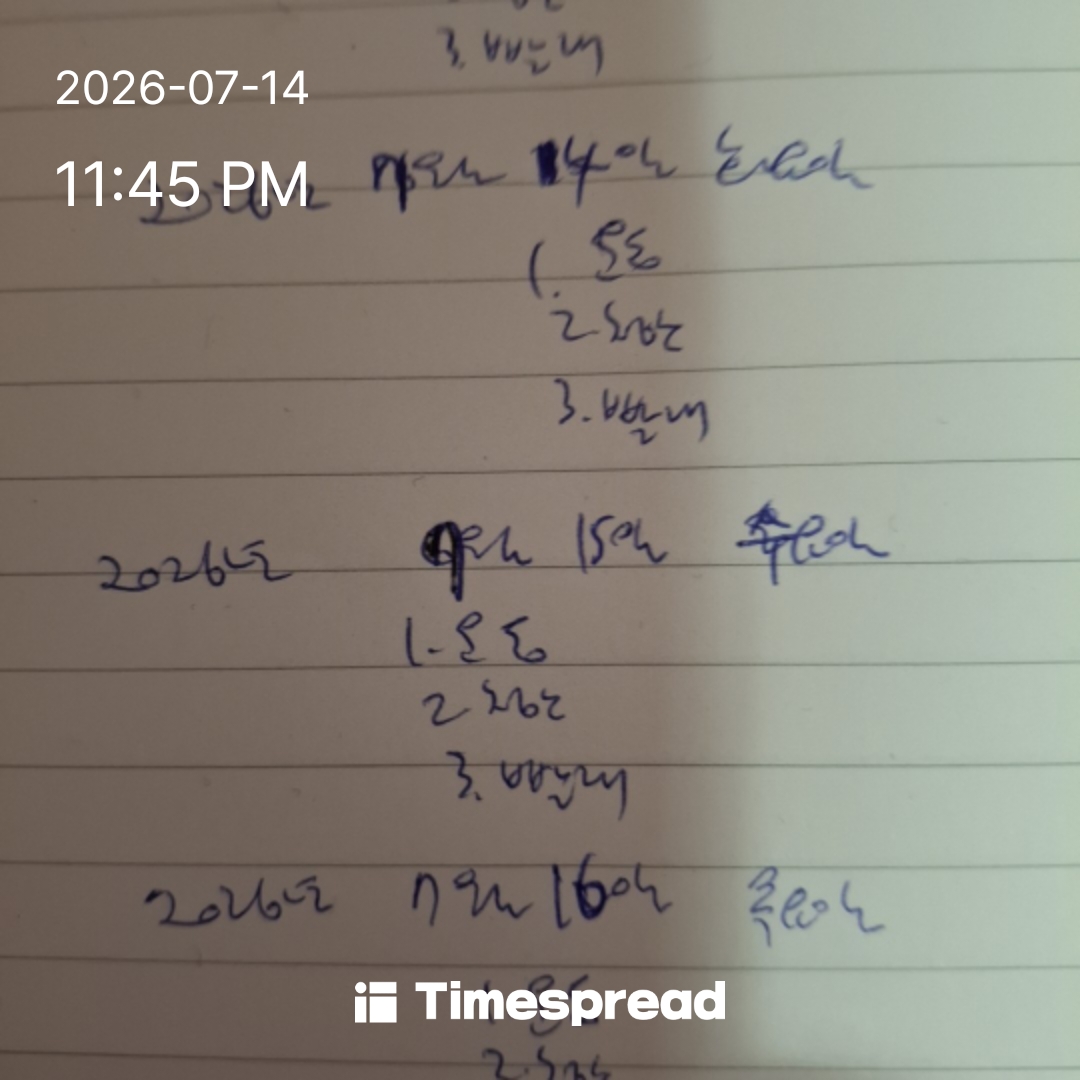 3. 빨래
2026-07-14
11:45 PM
2026년 7월 14일 화요일
1. 운동
2. 청소
3. 빨래
2026년 7월 15일 수요일
1. 운동
2. 청소
3. 빨래
2026년 7월 16일 목요일
Timespread
1. 운동
2.